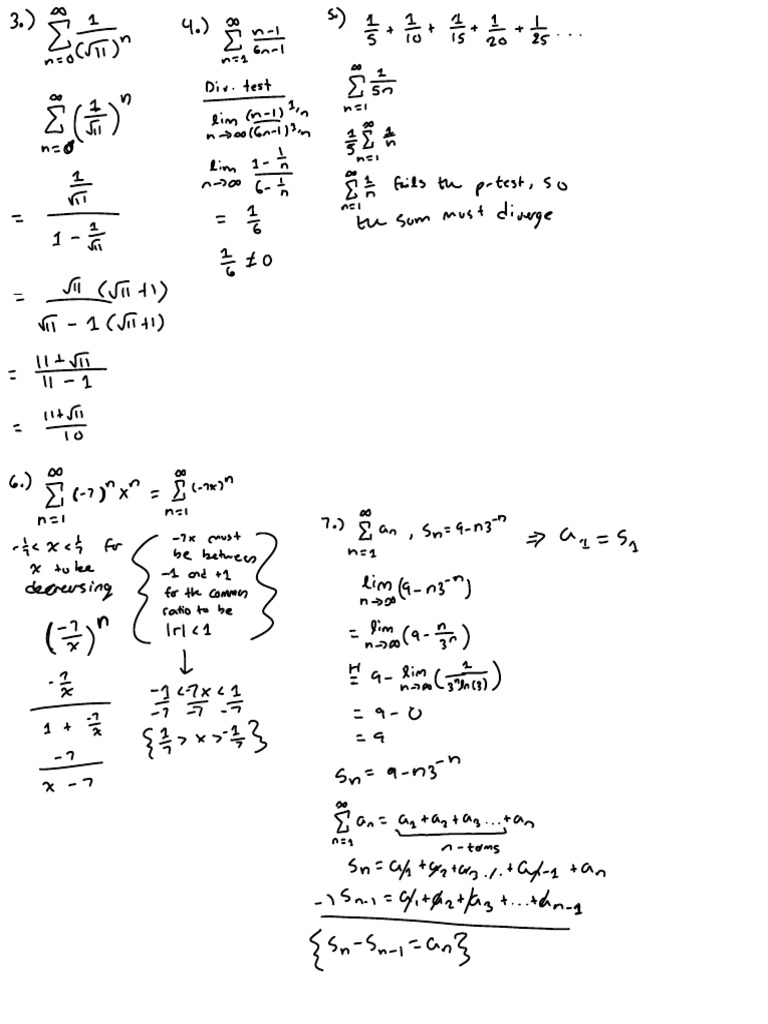 3.) ∞∑n=0 1/(√11)^n
∞∑n=0 (1/√11)^n
= (1/√11)/(1 - 1/√11)
= √11 (√11 + 1)/√11 - 1 (√11 + 1)
= 11 + √11/11 - 1
= 11 + √11/10
4.) ∞∑n=1 n-1/6n-1
Div. test
lim n→∞ (n-1)^1/n/(6n-1)^1/n
lim n→∞ 1 - 1/n/6 - 1/n
= 1/6
1/6 ≠ 0
5.) 1/5 + 1/10 + 1/15 + 1/20 + 1/25 ...
∞∑n=1 1/5n
1/5 ∞∑n=1 1/n
∞∑n=1 1/n fails the p-test, so
the sum must diverge
6.) ∞∑n=1 (-7)^n x^n = ∞∑n=1 (-7x)^n
-1/7 < x < 1/7 for
x to be
decreasing
(-7/x)^n
-7/x / 1 + -7/x
-7/x - 7
{ -7x must
be between
-1 and +1
for the common
ratio to be
|r| < 1 }
↓
-1/-7 < -7x/-7 < 1/-7
{1/7 > x > -1/7}
7.) ∞∑n=1 an, Sn = 9 - n3^-n ⇒ a1 = S1
lim n→∞ (9 - n3^-n)
= lim n→∞ (9 - n/3^n)
H= 9 - lim n→∞ (1/3^n ln(3))
= 9 - 0
= 9
Sn = 9 - n3^-n
∞∑n=1 an = a1 + a2 + a3 ... + an
n-terms
Sn = a1 + a2 + a3 ... + an-1 + an
-) Sn-1 = a1 + a2 + a3 + ... + an-1
{Sn - Sn-1 = an}